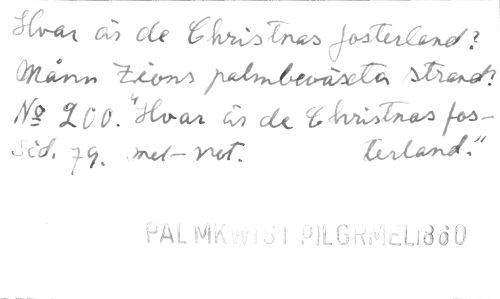 Hvar är de Christnas fosterland?
Månn Zions palmbeväxta strand?
No 200. "Hvar är de Christnas fos-
Sid. 79. mel-not. terland."
PALMKWIST PILGRMEL1860